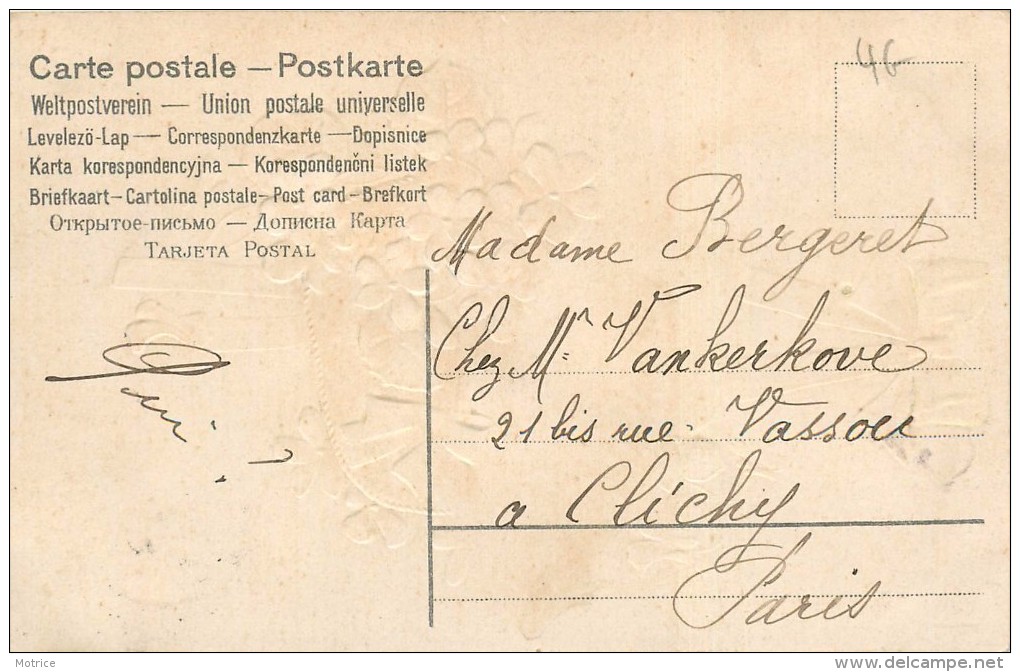 Carte postale — Postkarte
Weltpostverein — Union postale universelle
Levelezö-Lap — Correspondenzkarte — Dopisnice
Karta korespondencyjna — Korespondenčni listek
Briefkaart — Cartolina postale — Post card — Brefkort
Открытое-письмо — Дописна Карта
TARJETA POSTAL
46
Madame Bergeret
Chez Mr Vankerkove
21 bis rue Vassou
a Clichy
Paris
Qui ?
Motrice
www.delcampe.net